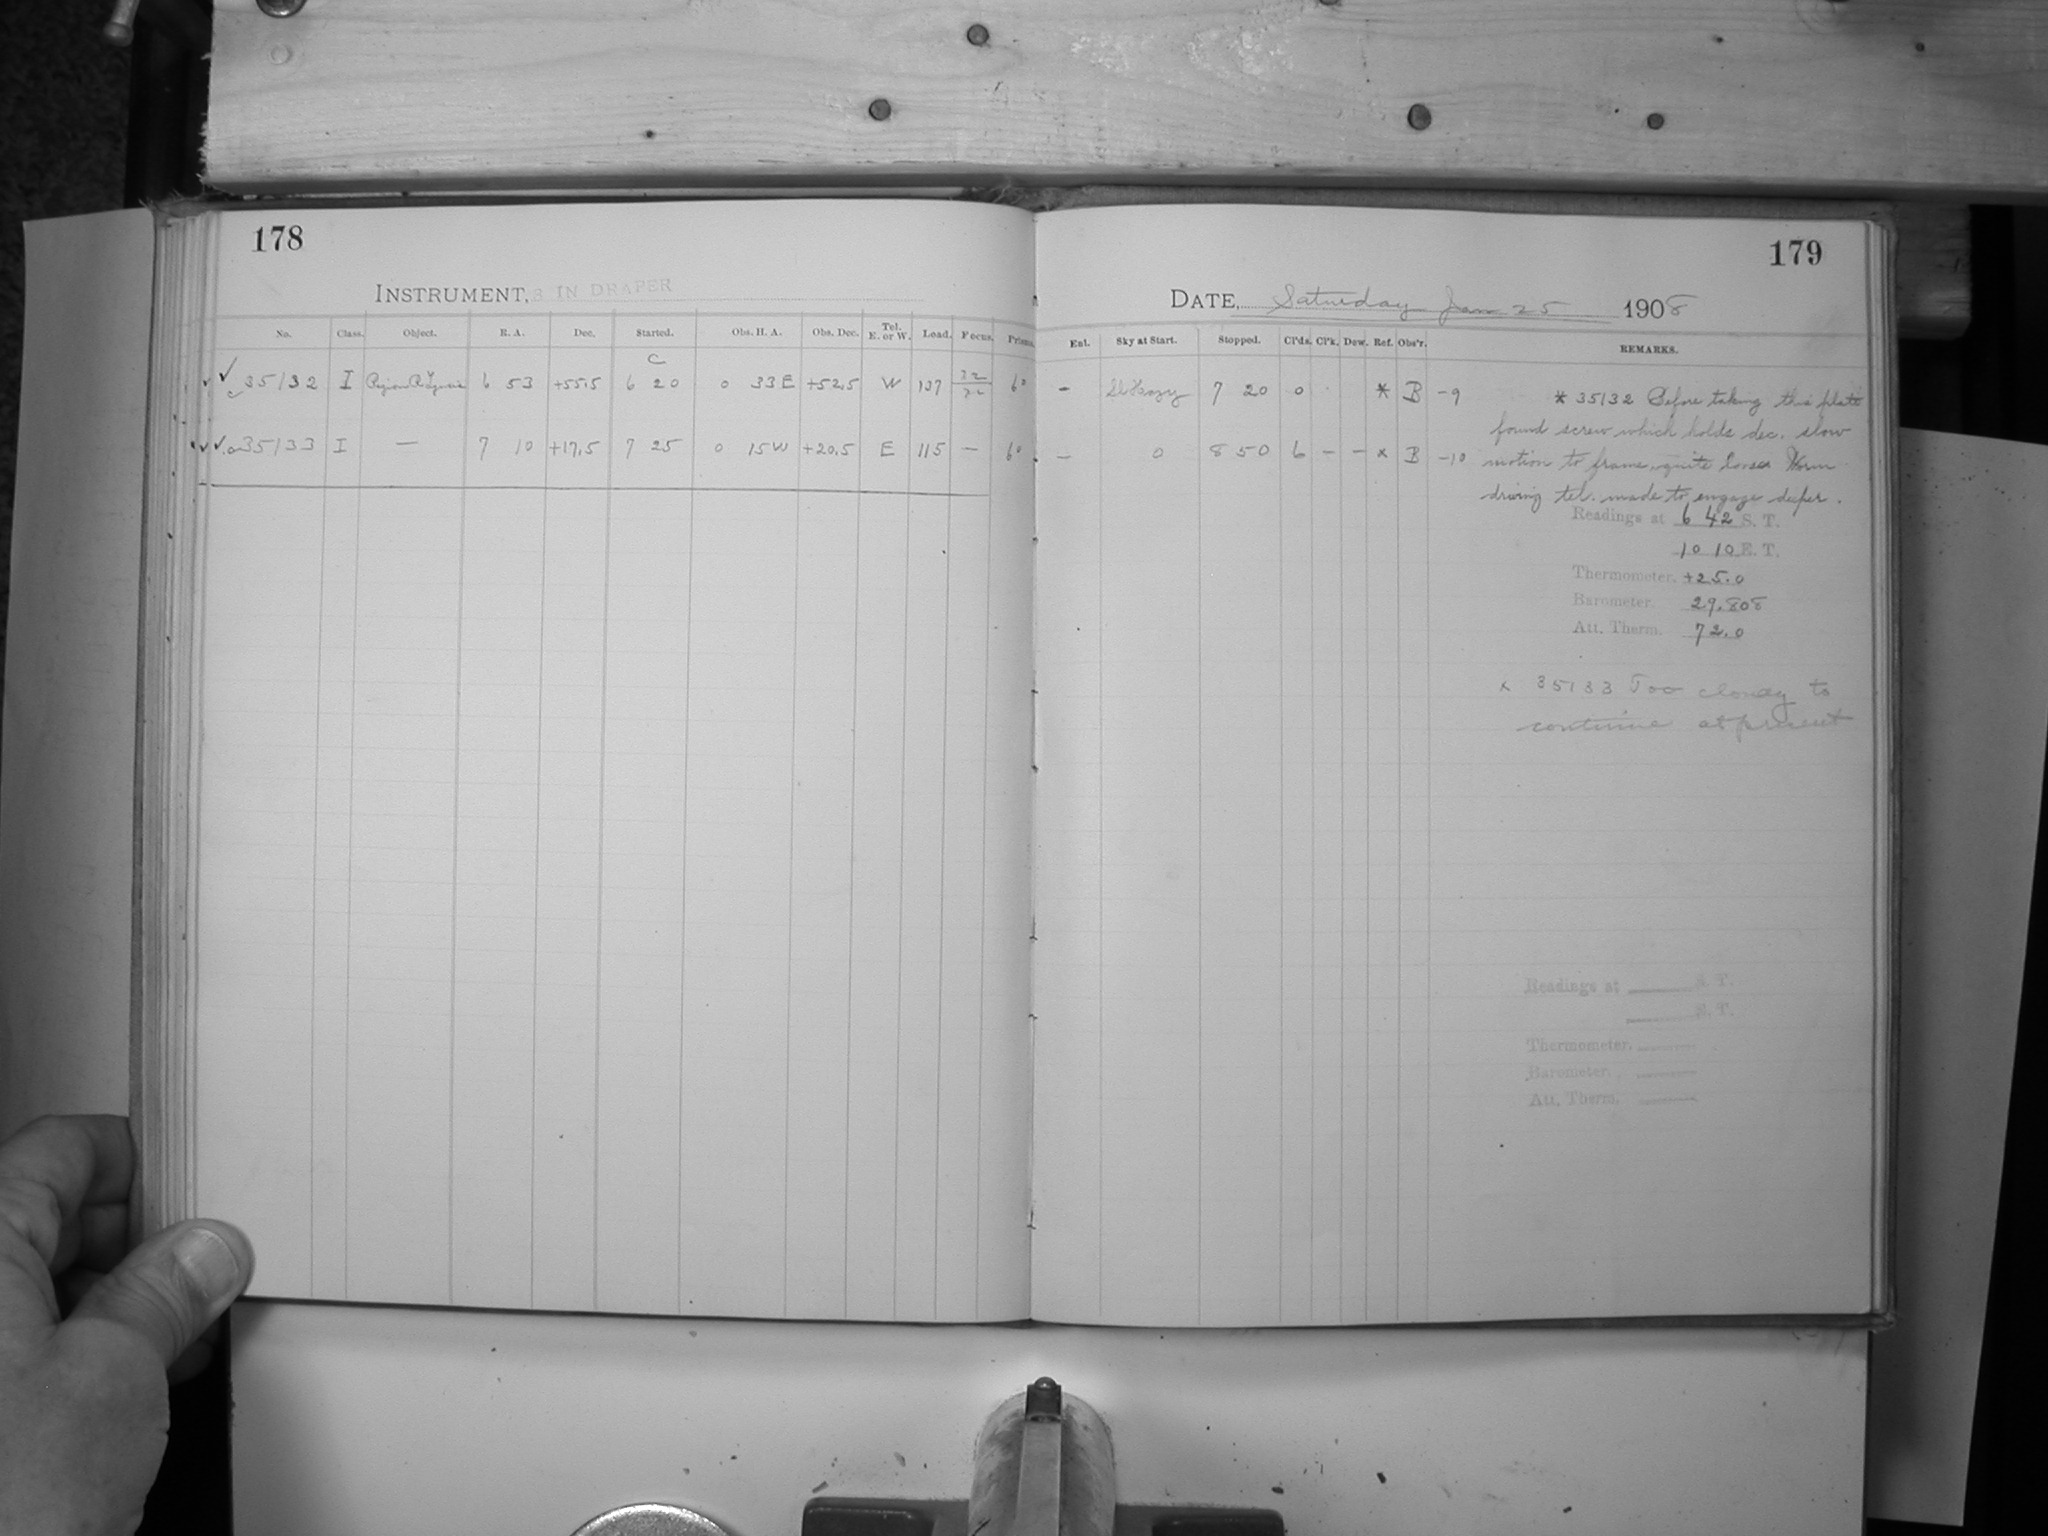 178
179
INSTRUMENT, 8 IN DRAPER
DATE, Saturday Jan 25 1908
No. Class. Object. R. A. Dec. Started. Obs. H. A. Obs. Dec. Tel. E. or W. Load. Focus. Prisms. Enl. Sky at Start. Stopped. Cl'ds. Cl'k. Dew. Ref. Obs'r. REMARKS.
C
35132 I Region R Lyncis 6 53 +55.5 6 20 0 33 E +52.5 W 137 32 6° - Sl Hazy 7 20 0 * B -9
* 35132 Before taking this plate
found screw which holds dec. slow
35133 I — 7 10 +17.5 7 25 0 15 W +20.5 E 115 — 6° — 0 8 50 6 - - x B -10
motion to frame, quite loose. Worm
driving tel. made to engage deeper.
Readings at 6 42 S. T.
10 10 E. T.
Thermometer. +25.0
Barometer 29.808
Att. Therm. 72.0
x 35133 Too cloudy to
continue at present
Readings at S. T.
E. T.
Thermometer.
Barometer.
Att. Therm.